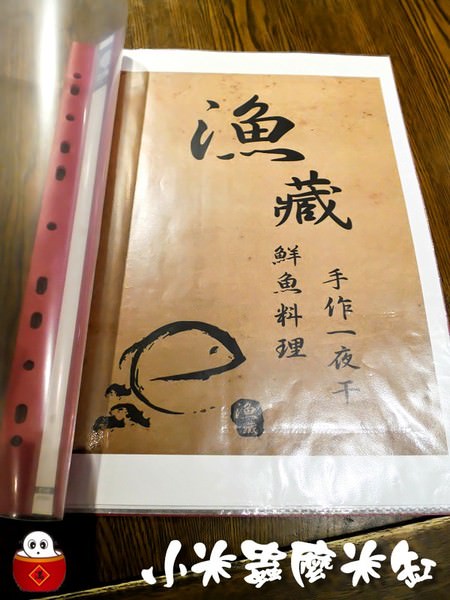 漁藏
手作一夜干
鮮魚料理
漁藏
小米蟲闖米缸